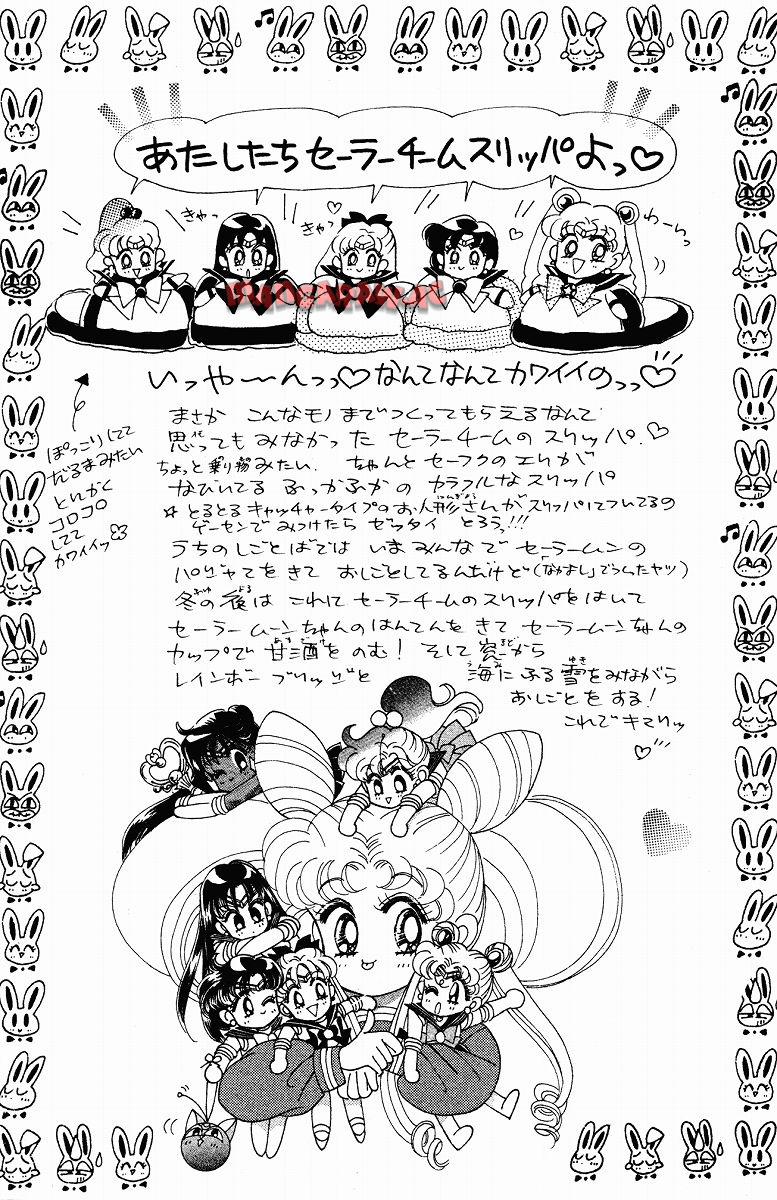 あたしたちセーラーチームスリッパよっ♡
きゃっ
きゃっ
わーいっ
いっや〜〜んっっ♡なんてなんてカワイイのっっ♡
ぽっこりしてて
だるまみたい
とにかく
コロコロ
してて
カワイイッ
まさか こんなモノまでつくってもらえるなんて
思ってもみなかった セーラーチームのスリッパ.♡
ちょっと乗り物みたい. ちゃんとセーフクのエリが
なびいてる ふっかふかの カラフルなスリッパ
☆ とるとるキャッチャータイプのお人形さんがスリッパについてるの
ゲーセンでみつけたら ゼッタイ とろうっ!!!
うちのしごとばでは いまみんなで セーラームーンの
パジャマをきて おしごとしてるんだけど(「なかよし」でつんだヤツ)
冬の夜は これに セーラーチームのスリッパをはいて
セーラームーンちゃんのはんてんをきて セーラームーンちゃんの
カップで甘酒をのむ! そして窓から
レインボーブリッジと 海にふる雪をみながら
おしごとをする!
これでキマりッ
♡